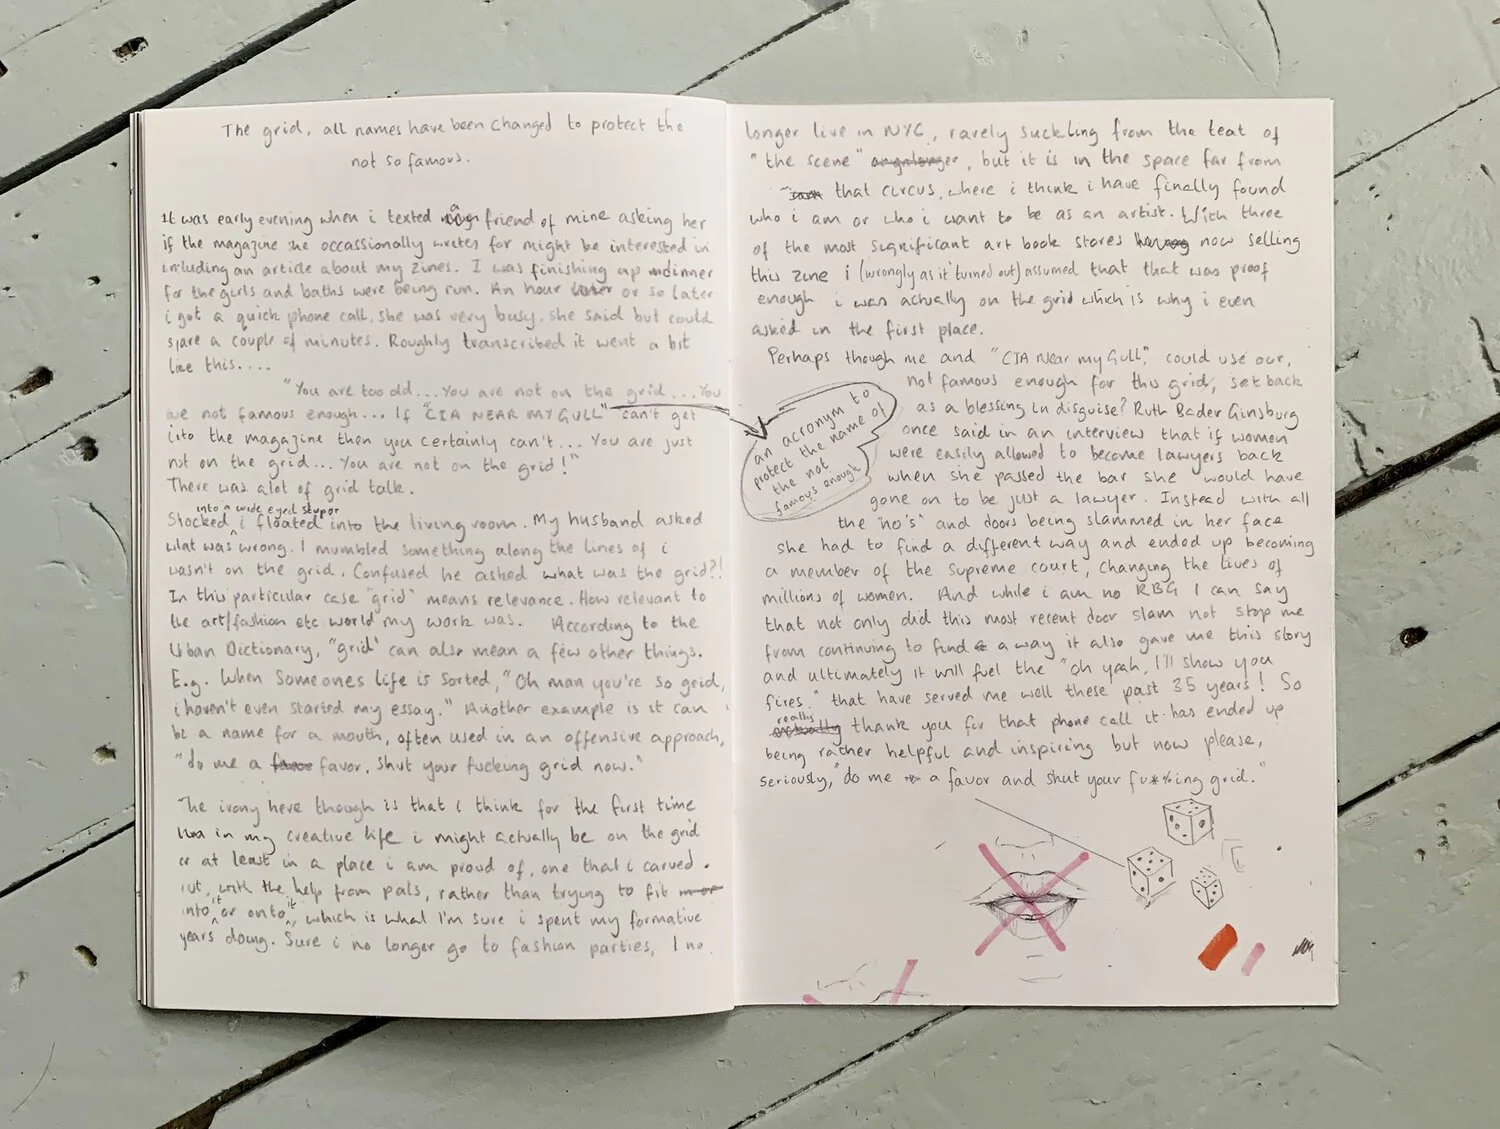 The grid, all names have been changed to protect the
not so famous.
It was early evening when i texted a friend of mine asking her
if the magazine she occassionally writes for might be interested in
including an article about my zines. I was finishing up dinner
for the girls and baths were being run. An hour or so later
i got a quick phone call, she was very busy, she said but could
spare a couple of minutes. Roughly transcribed it went a bit
like this....
"You are too old... You are not on the grid... You
are not famous enough... If "CIA NEAR MY GULL" can't get
into the magazine then you certainly can't... You are just
not on the grid... You are not on the grid!"
There was alot of grid talk.
into a wide eyed stupor
Shocked i floated into the living room. My husband asked
what was wrong. I mumbled something along the lines of i
wasn't on the grid. Confused he asked what was the grid?!
In this particular case "grid" means relevance. How relevant to
the art/fashion etc world my work was. According to the
Urban Dictionary, "grid" can also mean a few other things.
E.g. When Someones life is sorted, "Oh man you're so grid,
i haven't even started my essay." Another example is it can
be a name for a mouth, often used in an offensive approach,
"do me a favor, shut your fucking grid now."
The irony here though is that i think for the first time
in my creative life i might actually be on the grid
or at least in a place i am proud of, one that i carved
out, with the help from pals, rather than trying to fit
into it or onto it, which is what I'm sure i spent my formative
years doing. Sure i no longer go to fashion parties, I no
longer live in NYC, rarely suckling from the teat of
"the scene", but it is in the space far from
that circus, where i think i have finally found
who i am or who i want to be as an artist. With three
of the most significant art book stores now selling
this zine i (wrongly as it turned out) assumed that that was proof
enough i was actually on the grid which is why i even
asked in the first place.
Perhaps though me and "CIA Near my Gull," could use our,
not famous enough for this grid, set back
as a blessing in disguise? Ruth Bader Ginsburg
once said in an interview that if women
were easily allowed to become lawyers back
when she passed the bar she would have
gone on to be just a lawyer. Instead with all
the "no's" and doors being slammed in her face
she had to find a different way and ended up becoming
a member of the Supreme court, changing the lives of
millions of women. And while i am no RBG I can say
that not only did this most recent door slam not stop me
from continuing to find a way it also gave me this story
and ultimately it will fuel the "Oh yeah, I'll show you
fires." that have served me well these past 35 years! So
really
thank you for that phone call it has ended up
being rather helpful and inspiring but now please,
seriously, "do me a favor and shut your fu*%ing grid."
an acronym to
protect the name of
the not
famous enough